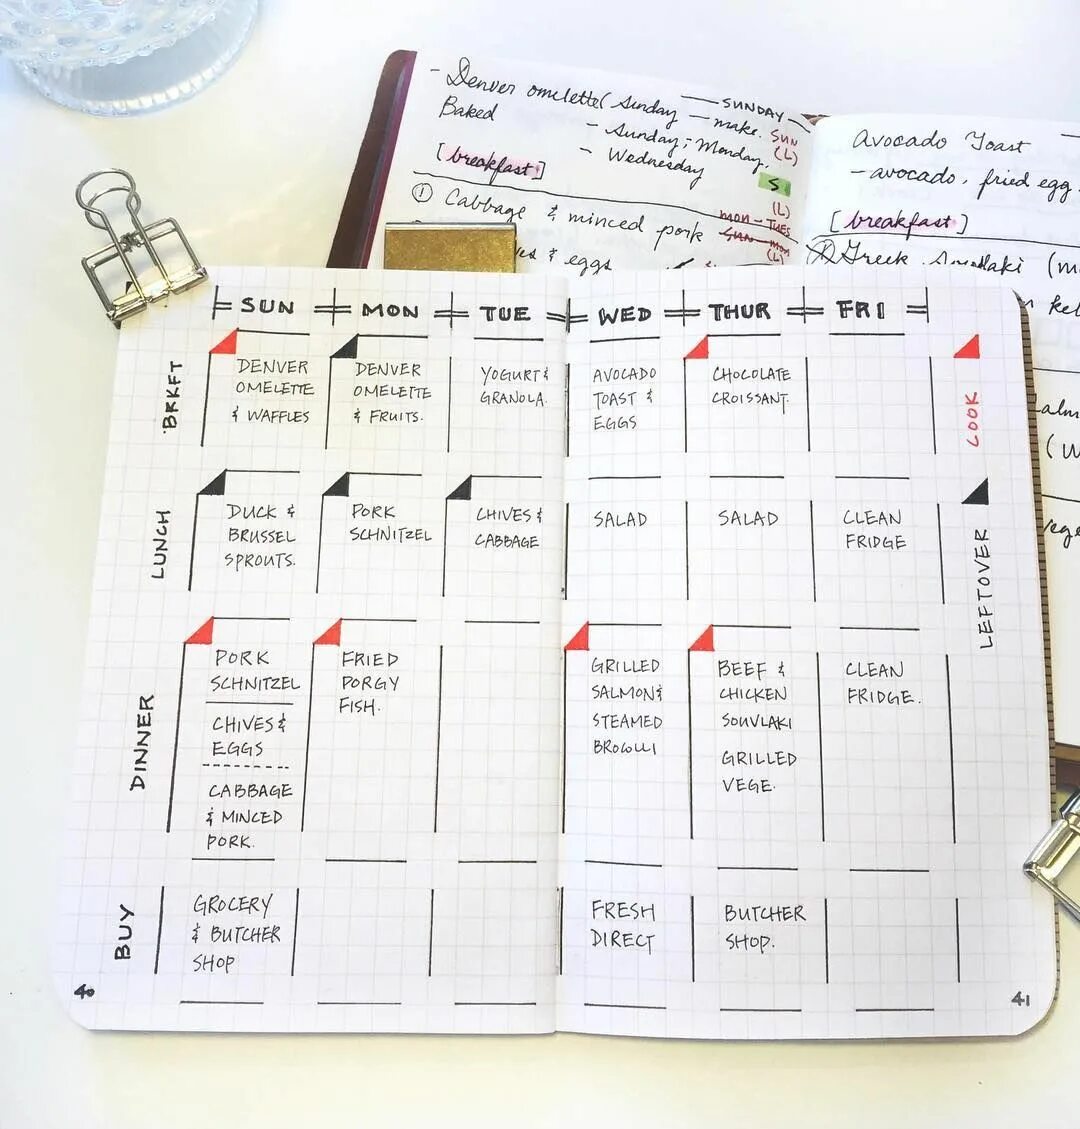 - Denver omelette (Sunday — make. SUN
— SUNDAY —
Baked - Sunday, - Monday, (L)
- Wednesday
[breakfast] S
(L)
① Cabbage & minced pork MON - TUES
SUN - MON
(L)
& eggs
Avocado Toast
- avocado, fried egg.
[breakfast]
Greek
SUN MON TUE WED THUR FRI
BRKFT
DENVER
OMELETTE
& WAFFLES
DENVER
OMELETTE
& FRUITS.
YOGURT &
GRANOLA.
AVOCADO
TOAST &
EGGS
CHOCOLATE
CROISSANT.
COOK
LUNCH
DUCK &
BRUSSEL
SPROUTS.
PORK
SCHNITZEL
CHIVES &
CABBAGE
SALAD
SALAD
CLEAN
FRIDGE
LEFTOVER
DINNER
PORK
SCHNITZEL
CHIVES &
EGGS
CABBAGE
& MINCED
PORK.
FRIED
PORGY
FISH.
GRILLED
SALMON &
STEAMED
BROCOLLI
BEEF &
CHICKEN
SOUVLAKI
GRILLED
VEGE.
CLEAN
FRIDGE.
BUY
GROCERY
& BUTCHER
SHOP
FRESH
DIRECT
BUTCHER
SHOP.
40
41